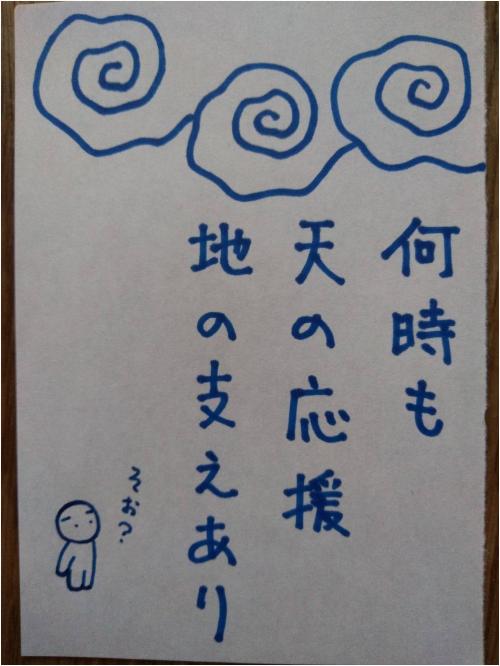 何時も
天の応援
地の支えあり
そぉ?